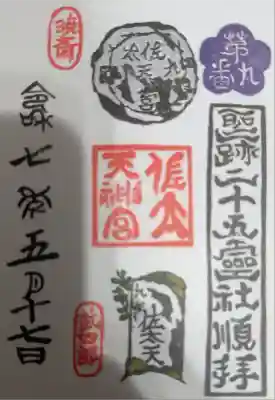 第九番
聖跡二十五霊社順拝
佐太天神宮
佐太天神宮
佐太天
令和七年五月十七日